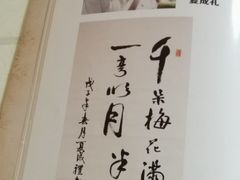 夏成礼
千朵梅花满
一弯似月半
戊子年春月夏成禮